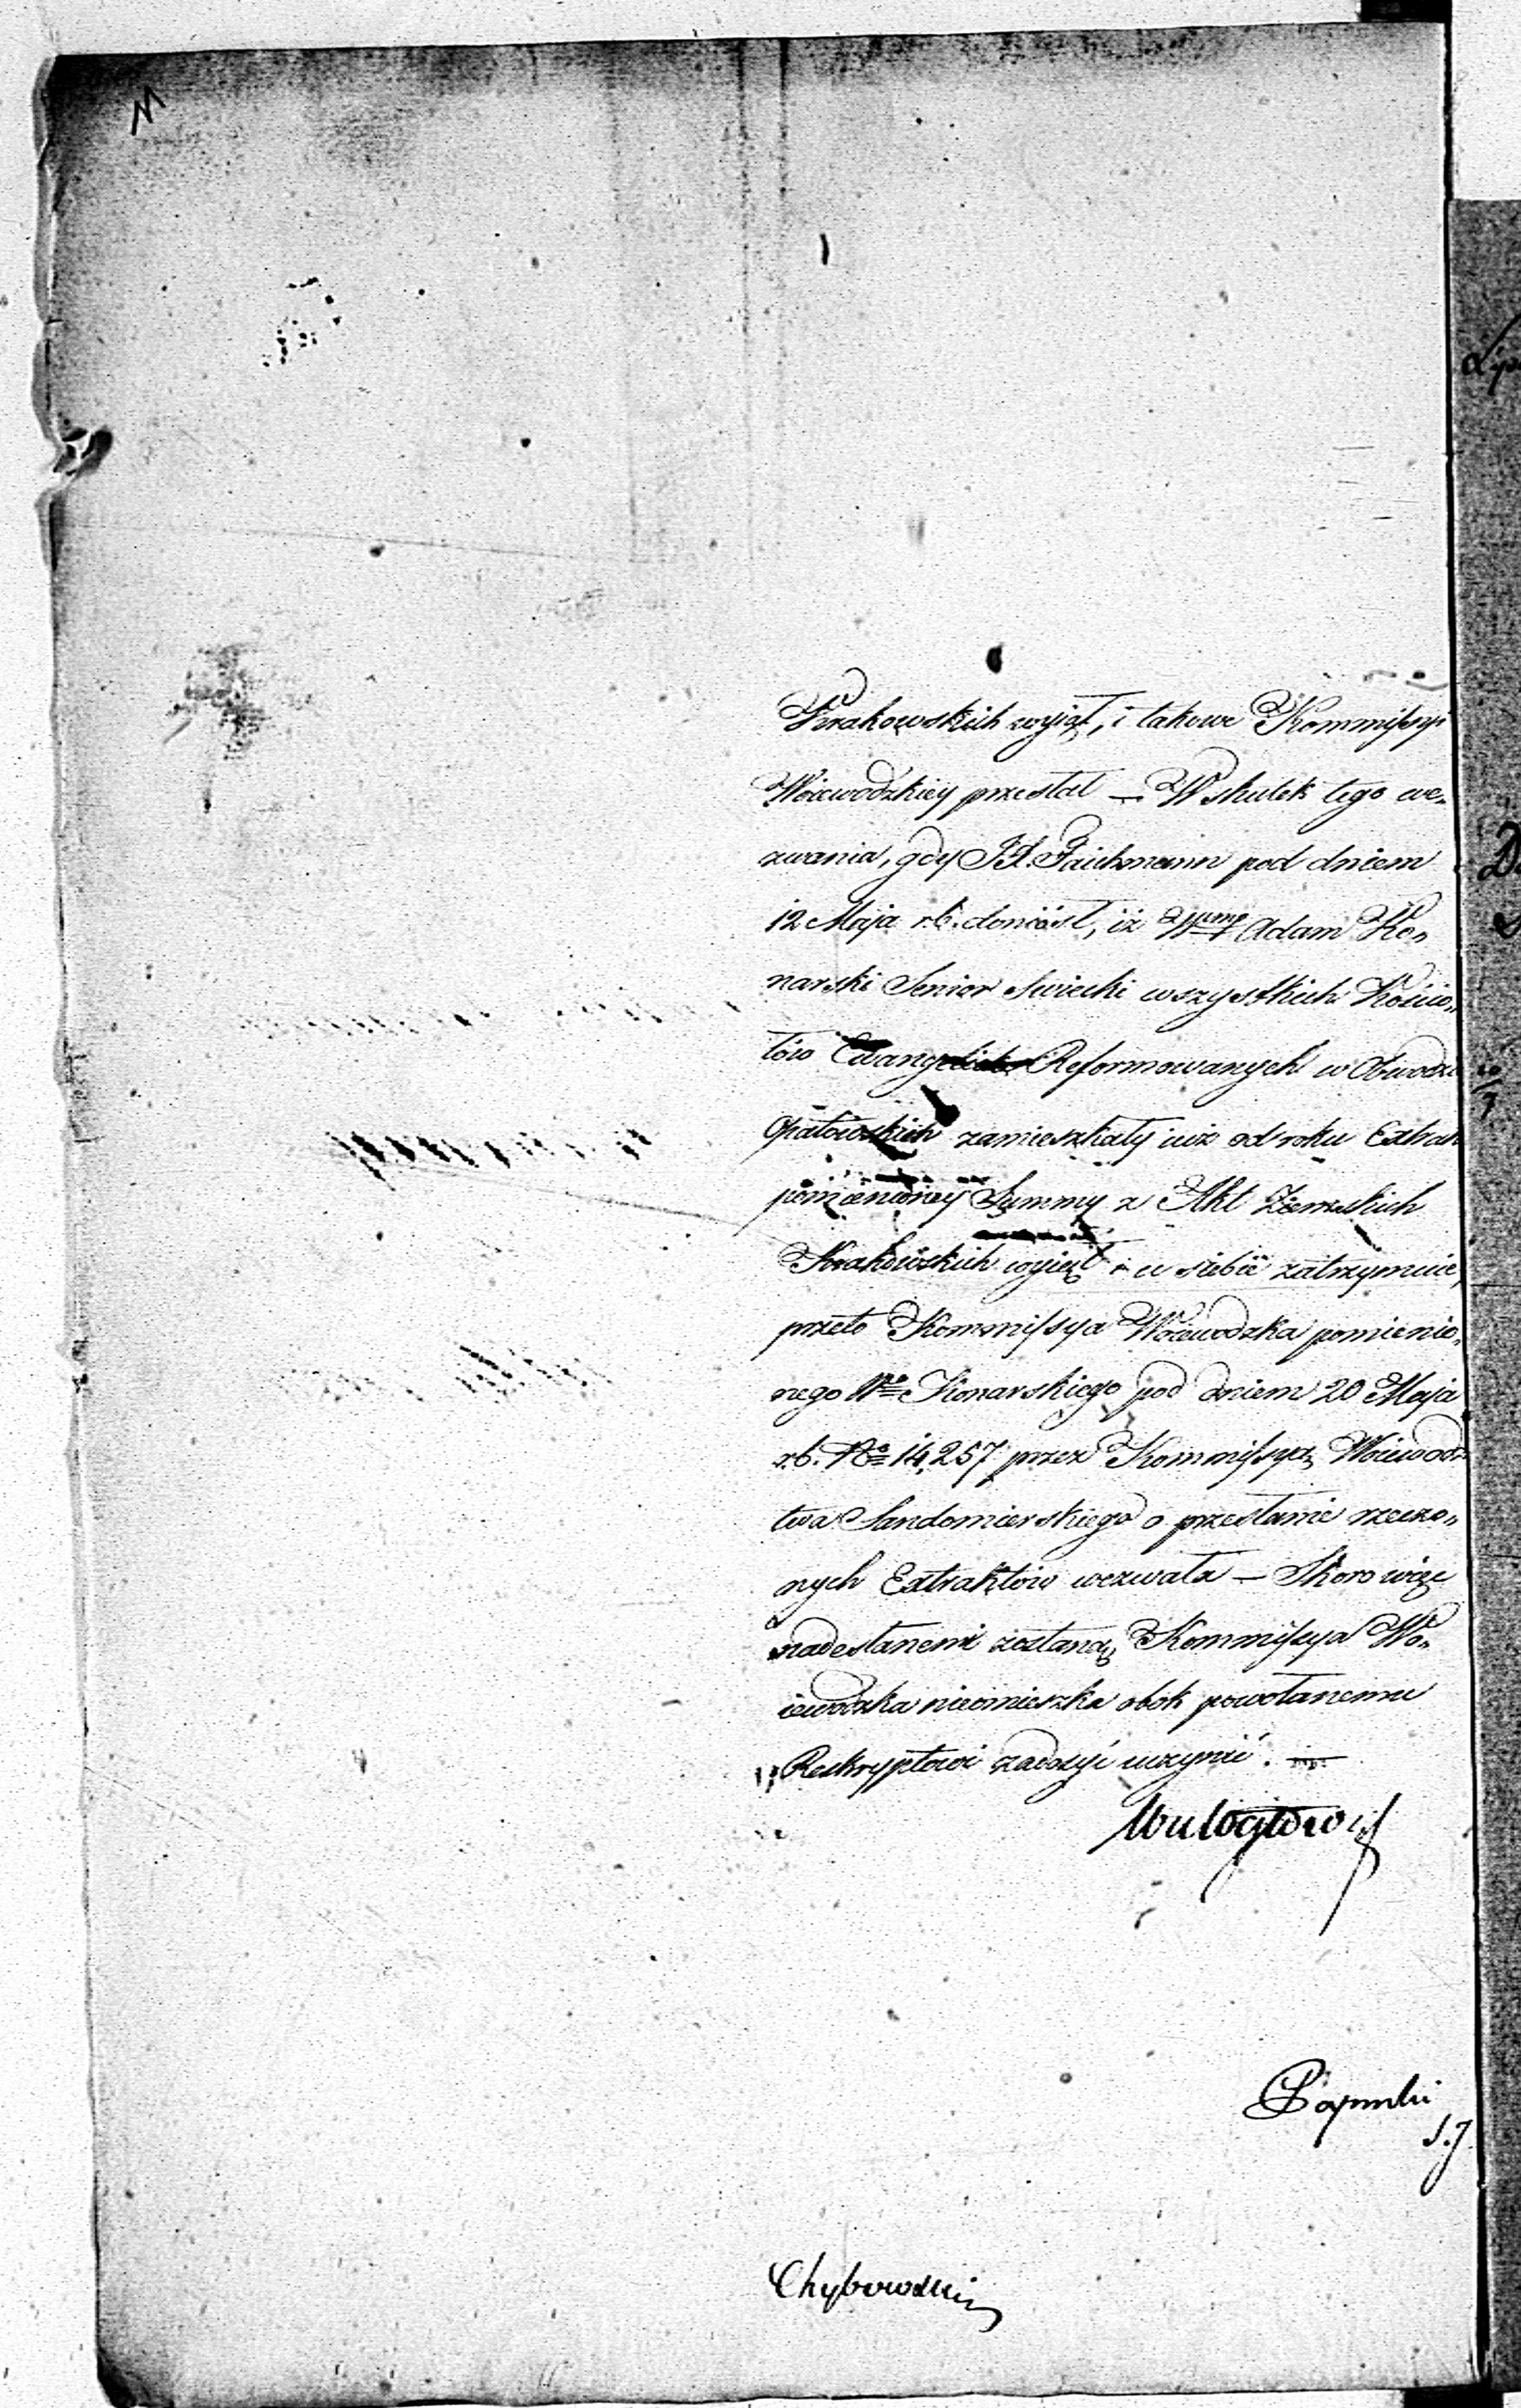 Krakowskich wyjął, i takowe Kommissyi
Woiewodzkiey przesłał — W skutek tego we„
zwania, gdy JX. Taichmann pod dniem
12 Maja r.b. doniósł, iż Adam Ko„
narski Senior świecki wszystkich Kościo„
łów Reformowanych w Obwodzie
Opatowskich zamieszkały iuż od roku Extrakt
pomienioney Summy z Akt Ziemskich
Krakowskich wyiął i u siebie zatrzymuie,
przeto Kommissya Woiewodzka pomienio„
nego Wo Konarskiego pod dniem 20 Maja
r.b. No 14,257 przez Kommissyą Woiewodz
twa Sandomierskiego o przesłanie rzeczo„
nych Extraktów wezwała — Skoro więc
nadesłanemi zostaną, Kommissya Wo„
iewodzka nieomieszka obok powołanemu
Reskryptowi zadosyć uczynić. —
Chybowski